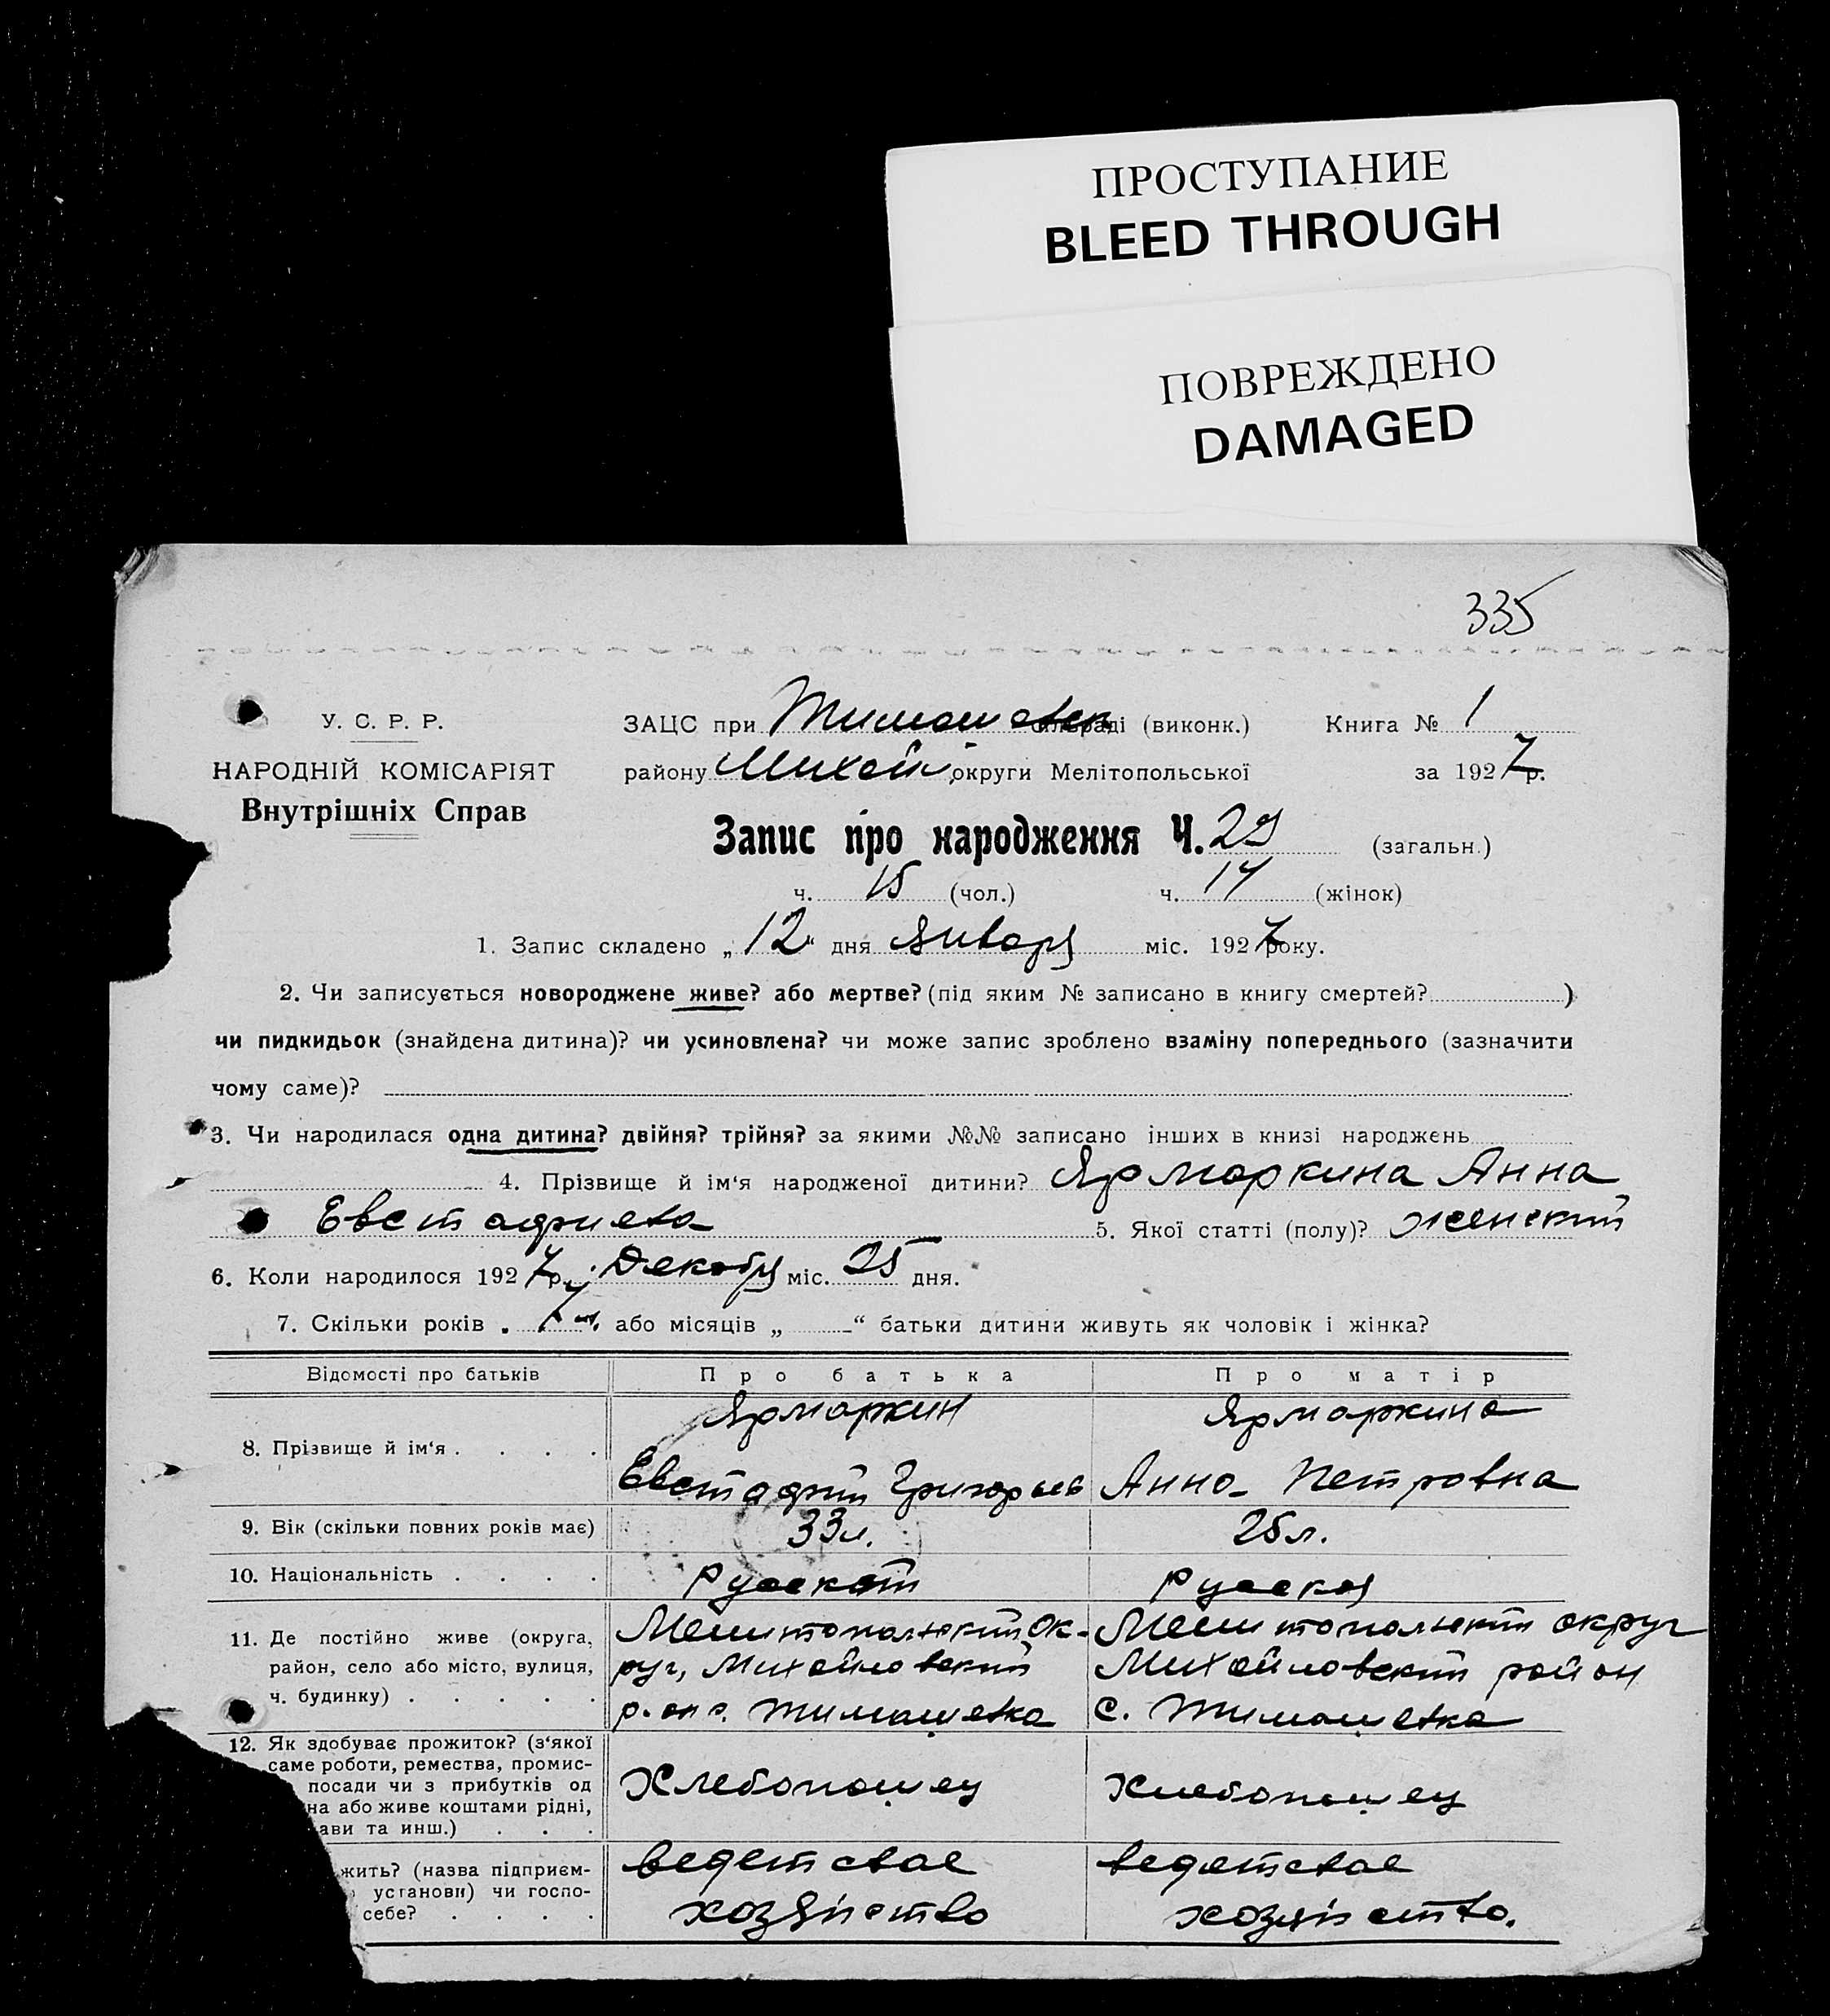 ПРОСТУПАНИЕ
BLEED THROUGH
ПОВРЕЖДЕНО
DAMAGED
335
У. С. Р. Р.
НАРОДНІЙ КОМІСАРІЯТ
Внутрішніх Справ
ЗАЦС при Тимошевск сільраді (виконк.) Книга № 1
району Михайл округи Мелітопольської за 1927 р.
Запис про народження Ч. 29 (загальн.)
ч. 15 (чол.) ч. 14 (жінок)
1. Запис складено „12“ дня Января міс. 1927 року.
2. Чи записується новороджене живе? або мертве? (під яким № записано в книгу смертей? )
чи пидкидьок (знайдена дитина)? чи усиновлена? чи може запис зроблено взаміну попереднього (зазначити
чому саме)?
3. Чи народилася одна дитина? двійня? трійня? за якими №№ записано інших в книзі народжень
4. Прізвище й ім‘я народженої дитини? Ярмаркина Анна
Евстафиева 5. Якої статті (полу)? женский
6. Коли народилося 1927 р. Декабря міс. 25 дня.
7. Скільки років або місяців „ “ батьки дитини живуть як чоловік і жінка?
Відомості про батьків Про батька Про матір
8. Прізвище й ім‘я . . . . Ярмаркин Ярмаркина
Евстафий Григорьев Анна Петровна
9. Вік (скільки повних років має) 33 л. 25 л.
10. Національність . . . . Русский Русская
11. Де постійно живе (округа, Мелитопольский ок- Мелитопольский округ
район, село або місто, вулиця, руг, Михайловский Михайловский район
ч. будинку) . . . . . р-он с. Тимошевка С. Тимошевка
12. Як здобуває прожиток? (з‘якої
саме роботи, ремества, промис-
посади чи з прибутків од Хлебопашец Хлебопашец
на або живе коштами рідні,
ави та инш.) . . .
жить? (назва підприєм- ведет свое ведет свое
установи) чи госпо- хозяйство хозяйство.
себе? . . . .